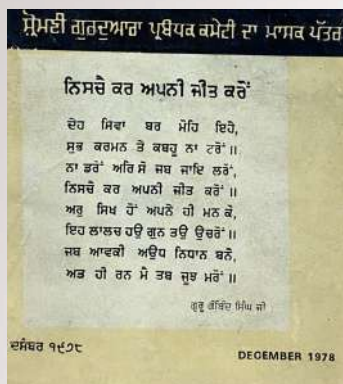 ਸ਼੍ਰੋਮਣੀ ਗੁਰਦੁਆਰਾ ਪ੍ਰਬੰਧਕ ਕਮੇਟੀ ਦਾ ਮਾਸਕ ਪੱਤਰ
ਨਿਸਚੈ ਕਰ ਅਪਨੀ ਜੀਤ ਕਰੋਂ
ਦੇਹ ਸਿਵਾ ਬਰ ਮੋਹਿ ਇਹੈ,
ਸੁਭ ਕਰਮਨ ਤੇ ਕਬਹੂ ਨਾ ਟਰੋਂ ॥
ਨਾ ਡਰੋਂ ਅਰਿ ਸੋ ਜਬ ਜਾਇ ਲਰੋਂ,
ਨਿਸਚੈ ਕਰ ਅਪਨੀ ਜੀਤ ਕਰੋਂ ॥
ਅਰੁ ਸਿਖ ਹੋਂ ਅਪਨੇ ਹੀ ਮਨ ਕੋ,
ਇਹ ਲਾਲਚ ਹਉ ਗੁਨ ਤਉ ਉਚਰੋਂ ॥
ਜਬ ਆਵਕੀ ਅਉਧ ਨਿਧਾਨ ਬਨੈ,
ਅਤ ਹੀ ਰਨ ਮੈ ਤਬ ਜੂਝ ਮਰੋਂ ॥
ਗੁਰੂ ਗੋਬਿੰਦ ਸਿੰਘ ਜੀ
ਦਸੰਬਰ ੧੯੭੮
DECEMBER 1978